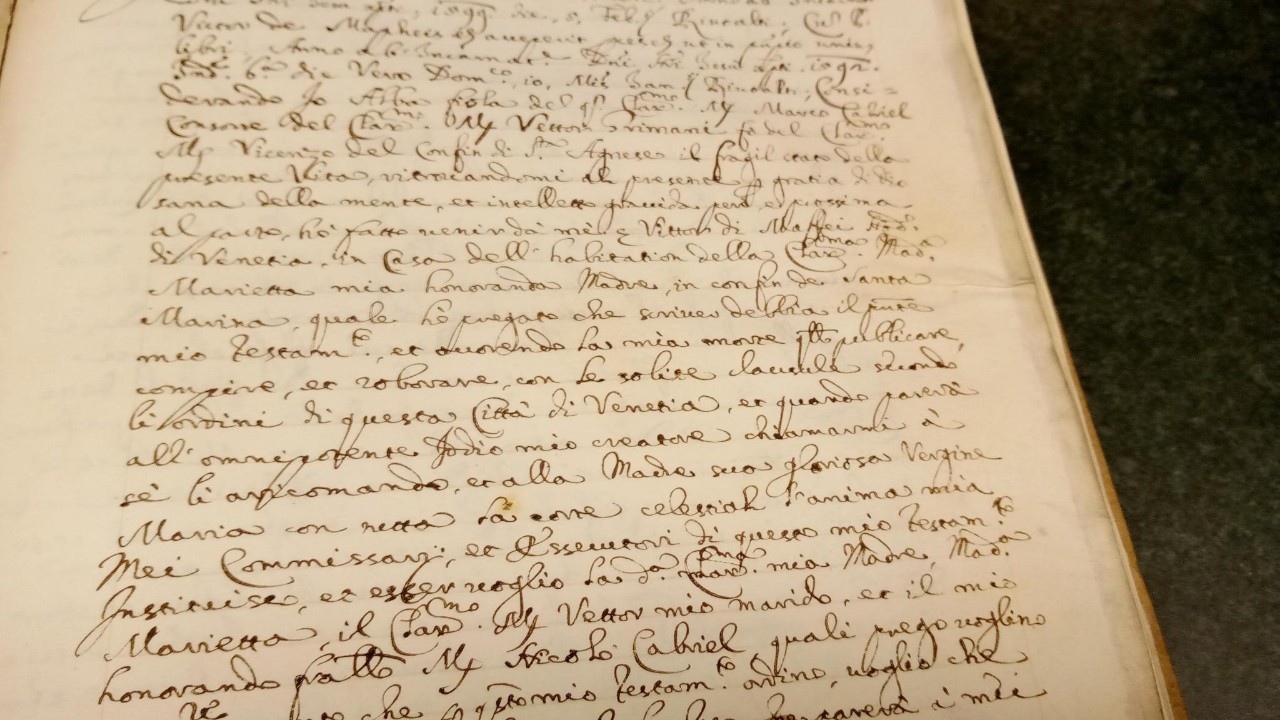 die, 5, Feb.
Vettor de Mapheis
libri, Anno ab Incarnat.e Dni Nri 1592.
Ind.e 6.a die Vero Dom.co, 10, M.s Consi=
derando Io Alba fiola del q. Clar.mo M. Marco Cabriel
Consorte del Clar.mo M. Vettor Grimani fo del Clar.mo
M. Vicenzo del Confin di S.ta Agnese il fragil stato della
presente Vita, ritrovandomi al presente p gratia di Dio
sana della mente, et intelletto gravida però, e prossima
al parto, hò fatto venir dà me Vittor di Maffei Nod.o
di Venetia, in Casa dell' habitation della Clar.ma Mad.a
Marietta mia honoranda Madre, in confin de Santa
Marina, quale hò pregato che scriver debbia il pnte
mio testam.to, et occorendo la mia morte publicare,
compire, et roborare, con le solite clausule secondo
li ordini di questa Città di Venetia, et quando parerà
all' omnipotente Iddio mio creatore chiamarmi à
sè li aricomando, et alla Madre sua gloriosa Vergine
Maria con tutta la corte celestial l'anima mia
Mei Commissarij, et Essecutori di questo mio testam.to
Instituisco, et esser voglio la d.a Clar.ma mia Madre, Mad.a
Marietta, il Clar.mo M. Vettor mio marido, et il mio
honorando fratello M. Nicolò Cabriel, quali prego voglino
che qsto mio testam.to ordino, voglio che
parerà à miei